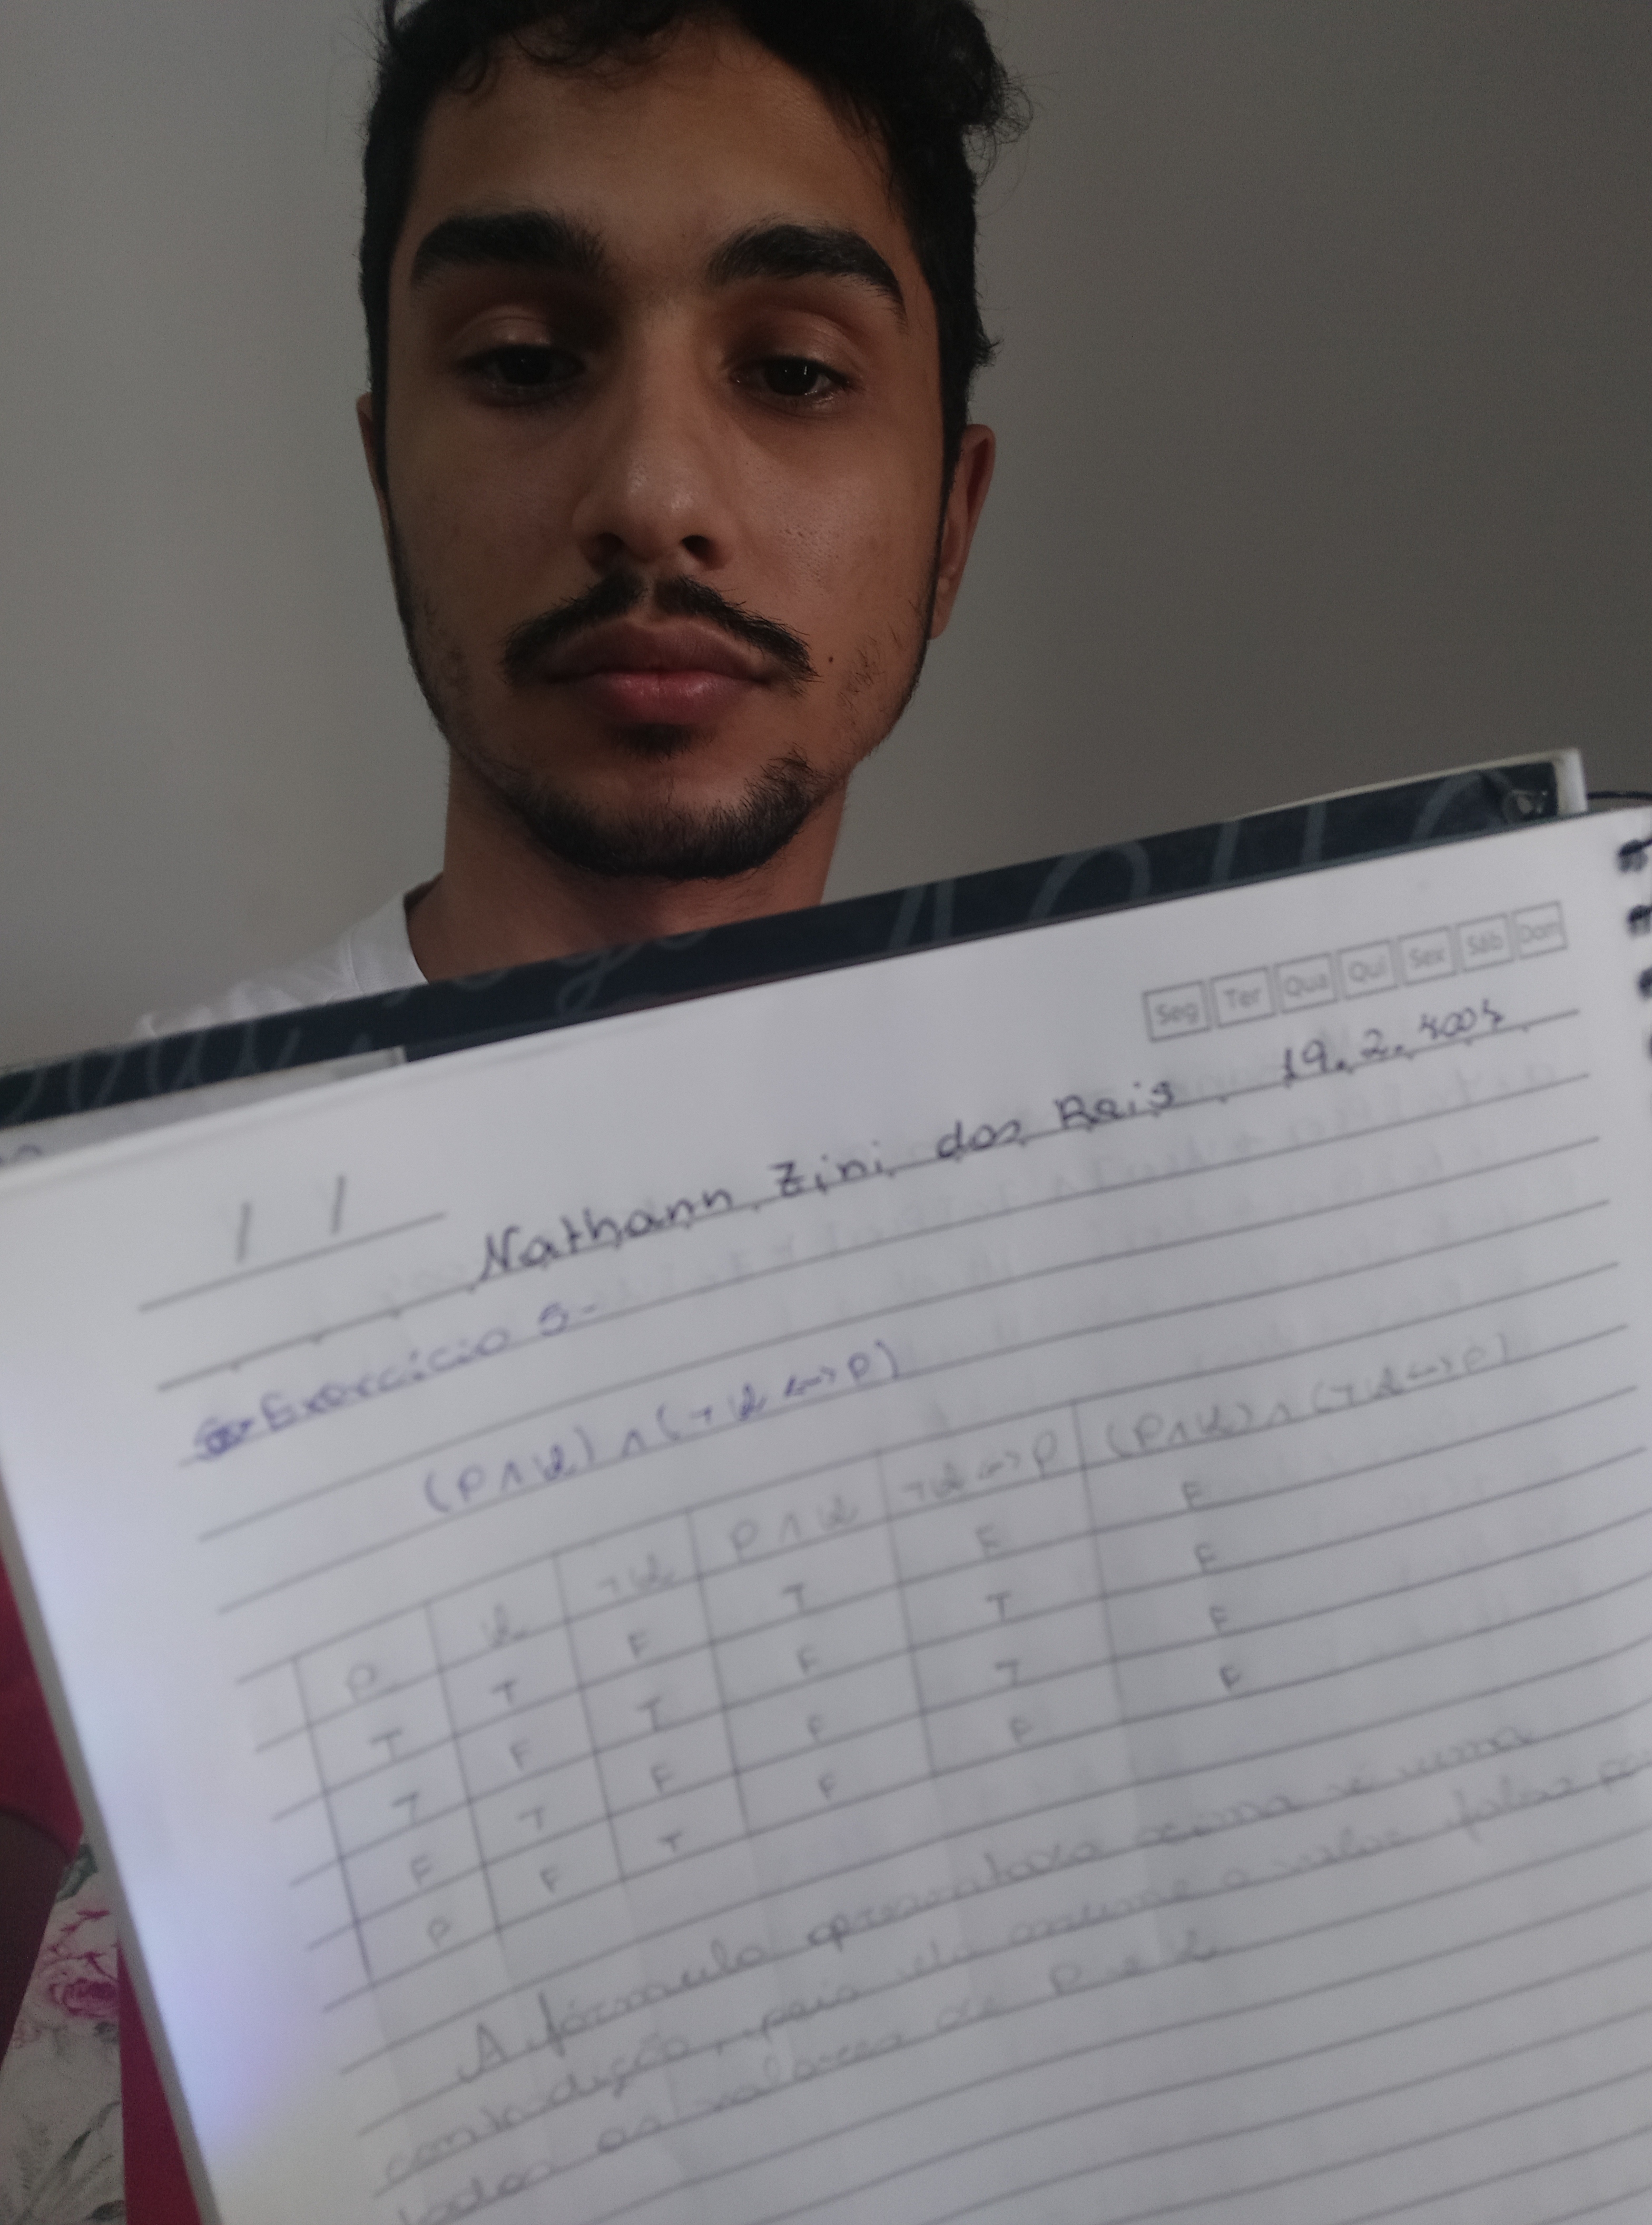 Seg Ter Qua Qui Sex Sáb Dom
/ /
Nathann Zini dos Reis 19.2.4007
Exercício 5-
(P ∧ Q) ∧ (¬Q <=> P)
P Q ¬Q P ∧ Q ¬Q <=> P (P ∧ Q) ∧ (¬Q <=> P)
T T F T F F
T F T F T F
F T F F T F
F F T F F F
A fórmula apresentada acima é uma
contradição, pois ela assume o valor falso
todos os valores de P e Q